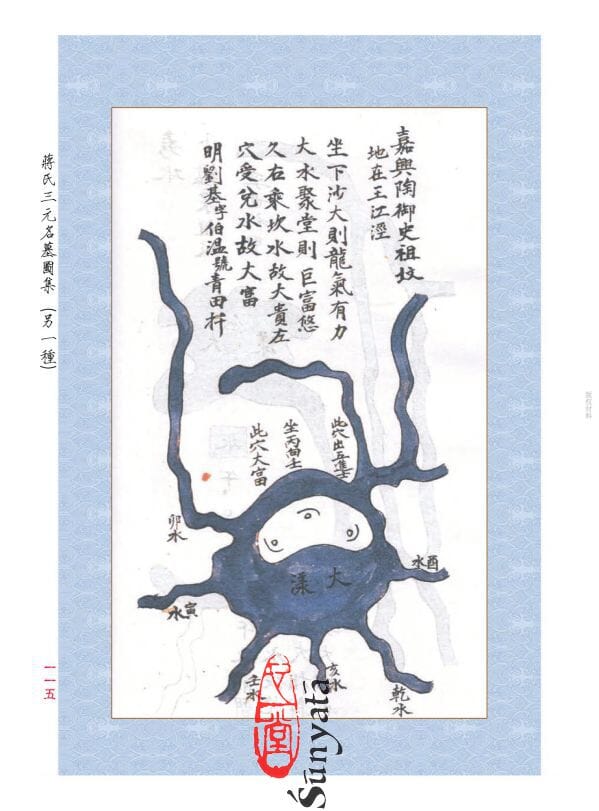 嘉興陶御史祖坟
地在王江涇
坐下沙大則龍氣有力
大水聚堂則巨富悠
久右乘坎水故大貴左
穴受兌水故大富
明劉基字伯温號青田扦
此穴出五進士
坐丙向壬
此穴大富
卯水
酉水
大漾
寅水
乾水
亥水
壬水
蔣氏三元名墓圖集(另一種)
一一五
心一堂
Śūnyatā
版权材料